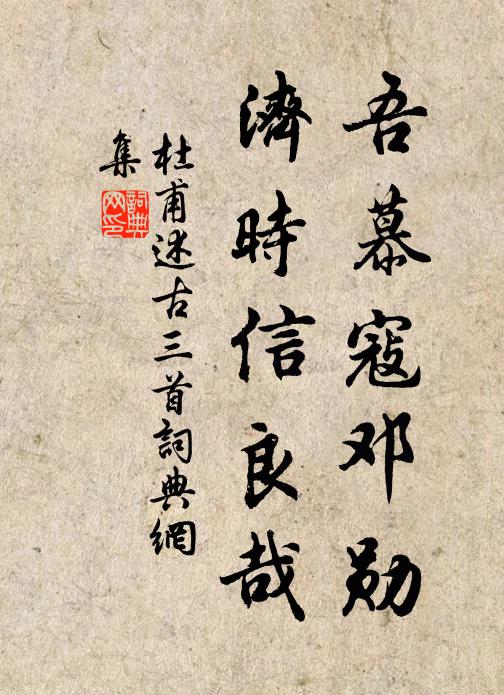 吾慕寇邓勋
濟時信良哉
杜甫述古三首詞典網
集
詞典网印